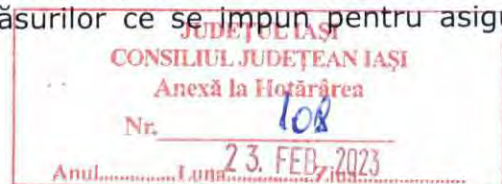 ăsurilor ce se impun pentru asigu
JUDEŢUL IAŞI
CONSILIUL JUDEŢEAN IAŞI
Anexă la Hotărârea
Nr. 108
Anul............Luna............Ziua............
23. FEB. 2023